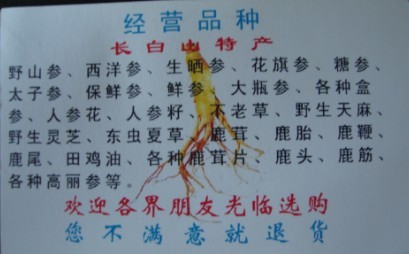 经营品种
长白山特产
野山参、西洋参、生晒参、花旗参、糖参、
太子参、保鲜参、鲜参、大瓶参、各种盒
参、人参花、人参籽、不老草、野生天麻、
野生灵芝、东虫夏草、鹿茸、鹿胎、鹿鞭、
鹿尾、田鸡油、各种鹿茸片、鹿头、鹿筋、
各种高丽参等。
欢迎各界朋友光临选购
您不满意就退货